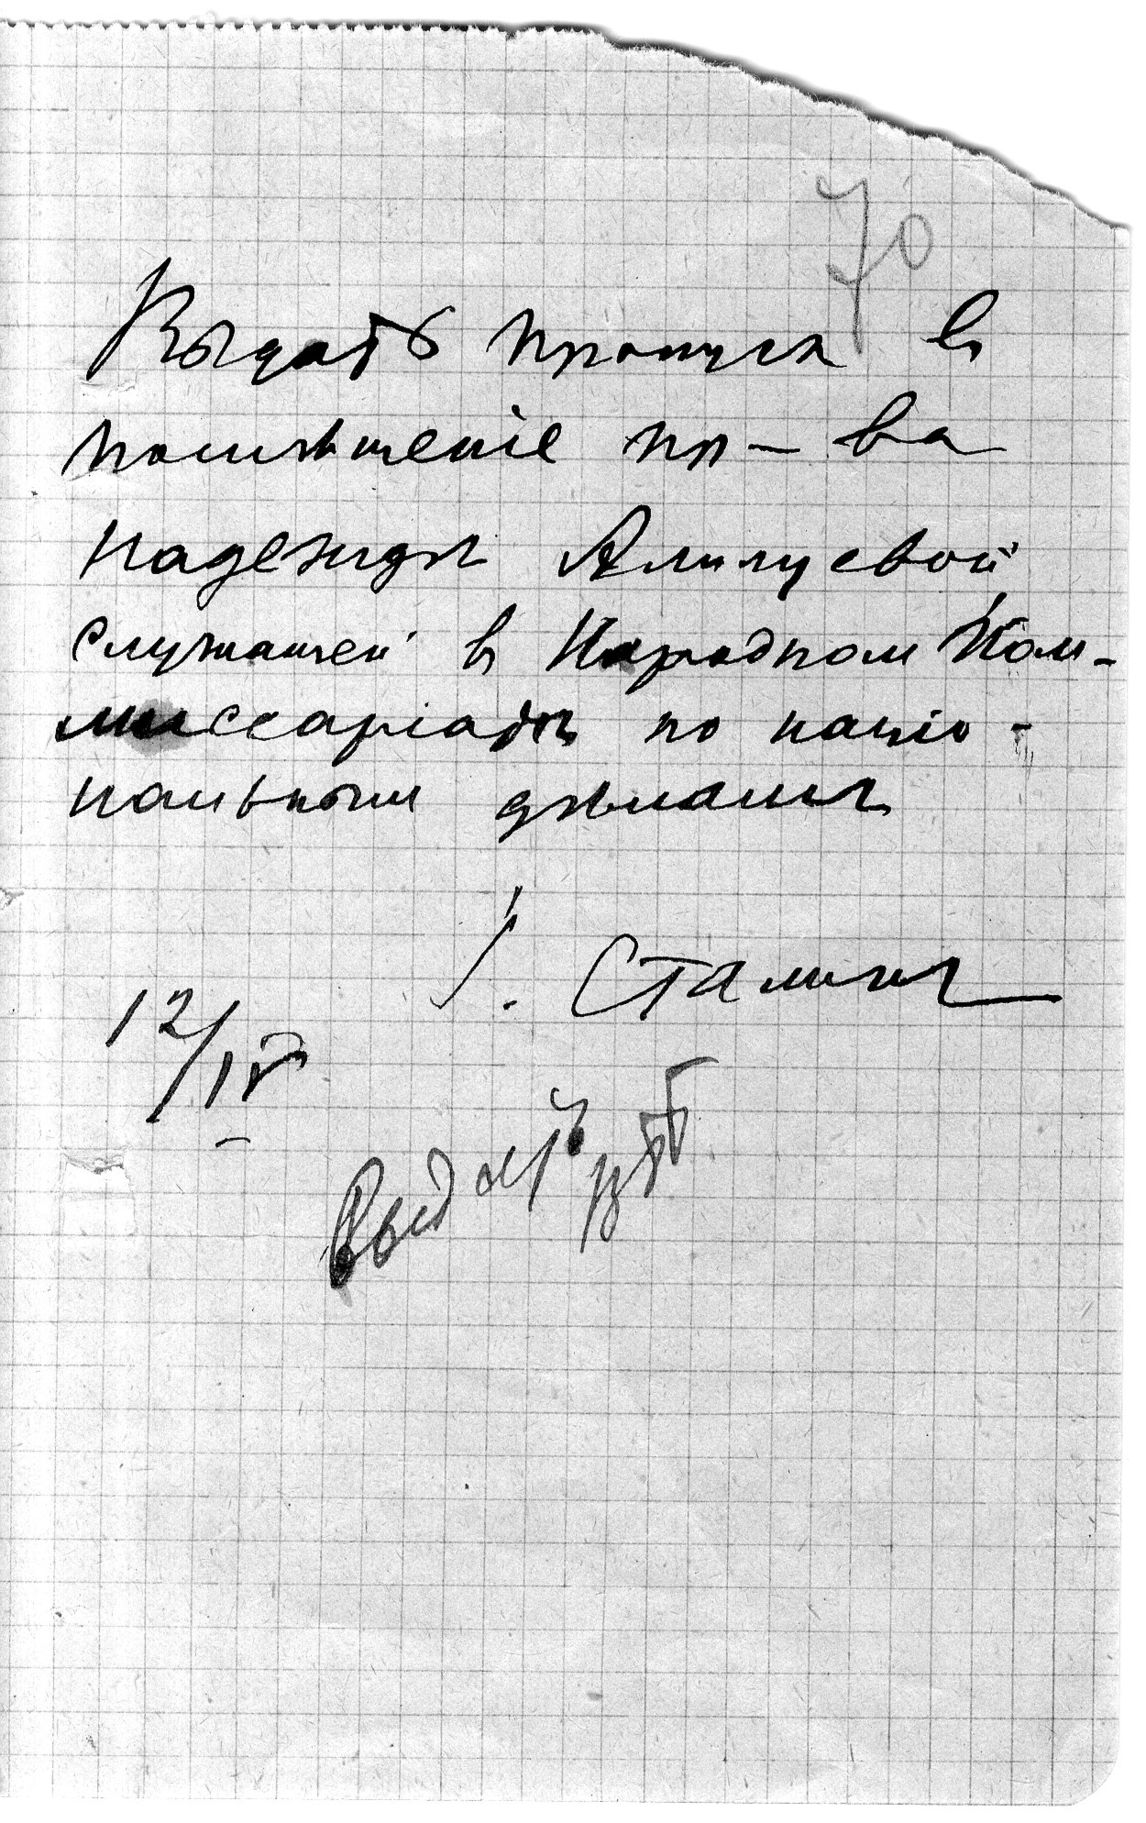 70
Выдать пропуск в
помѣщеніе пр-ва
Надежды Аллилуевой
служащей в Народном Ком-
миссаріатѣ по націо-
нальным дѣлам
І. Сталин
12/IV
Выдать